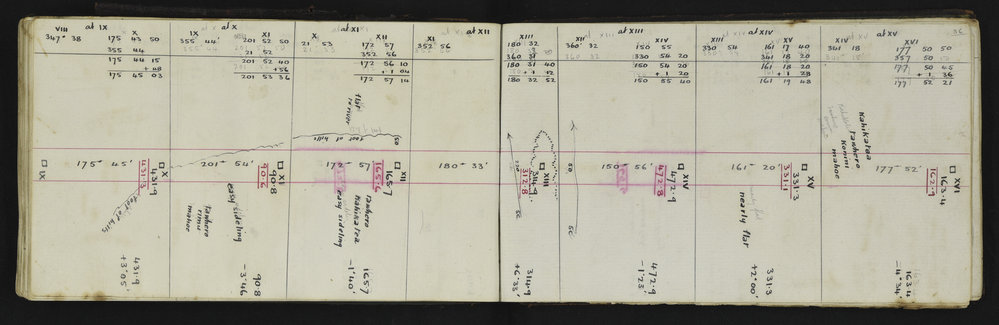 at IX
VIII X
347° 38 175 43 50
355 44
175 44 15
+ 08
175 45 03
at X
IX XI
355 44 201 52 50
21 52
201 52 40
+ 56
201 53 36
at XI
X XII
21 53 172 57
352 56
172 56 10
+ 1 04
172 57 14
at XII
XI XIII
352 56 180 32
360 31
180 31 40
+ 1 12
180 32 52
at XIII
XII XIV
360° 32 150 55
330 54 20
150 54 20
+ 1 20
150 55 40
at XIV
XIII XV
330 54 161 17 40
341 18 20
161 18 20
+ 1 28
161 19 48
at XV
XIV XVI
341 18 177 50 50
357 50
177 50 45
+ 1 36
177 52 21
36
IX
175° 45'
431.9
431.3
X
foot of hills
431.9
+3°05'
201° 54'
90.8
90.6
XI
easy sideling
Tawhero
rimu
mahoe
90.8
-3°46
flat
to river
foot of hills
50
172° 57'
1657
1655.6
XII
Tawhero
Kahikatea
easy sideling
1657
-1°40'
180° 33'
314.9
312.8
XIII
314.9
+6°33'
50
50
150° 56'
472.9
472.8
XIV
472.9
-1°23'
161° 20'
331.3
331.1
XV
nearly flat
331.3
+2°00'
Kahikatea
Tawhero
Konini
mahoe
177° 52'
163.4
162.9
XVI
163.4
-4°34'